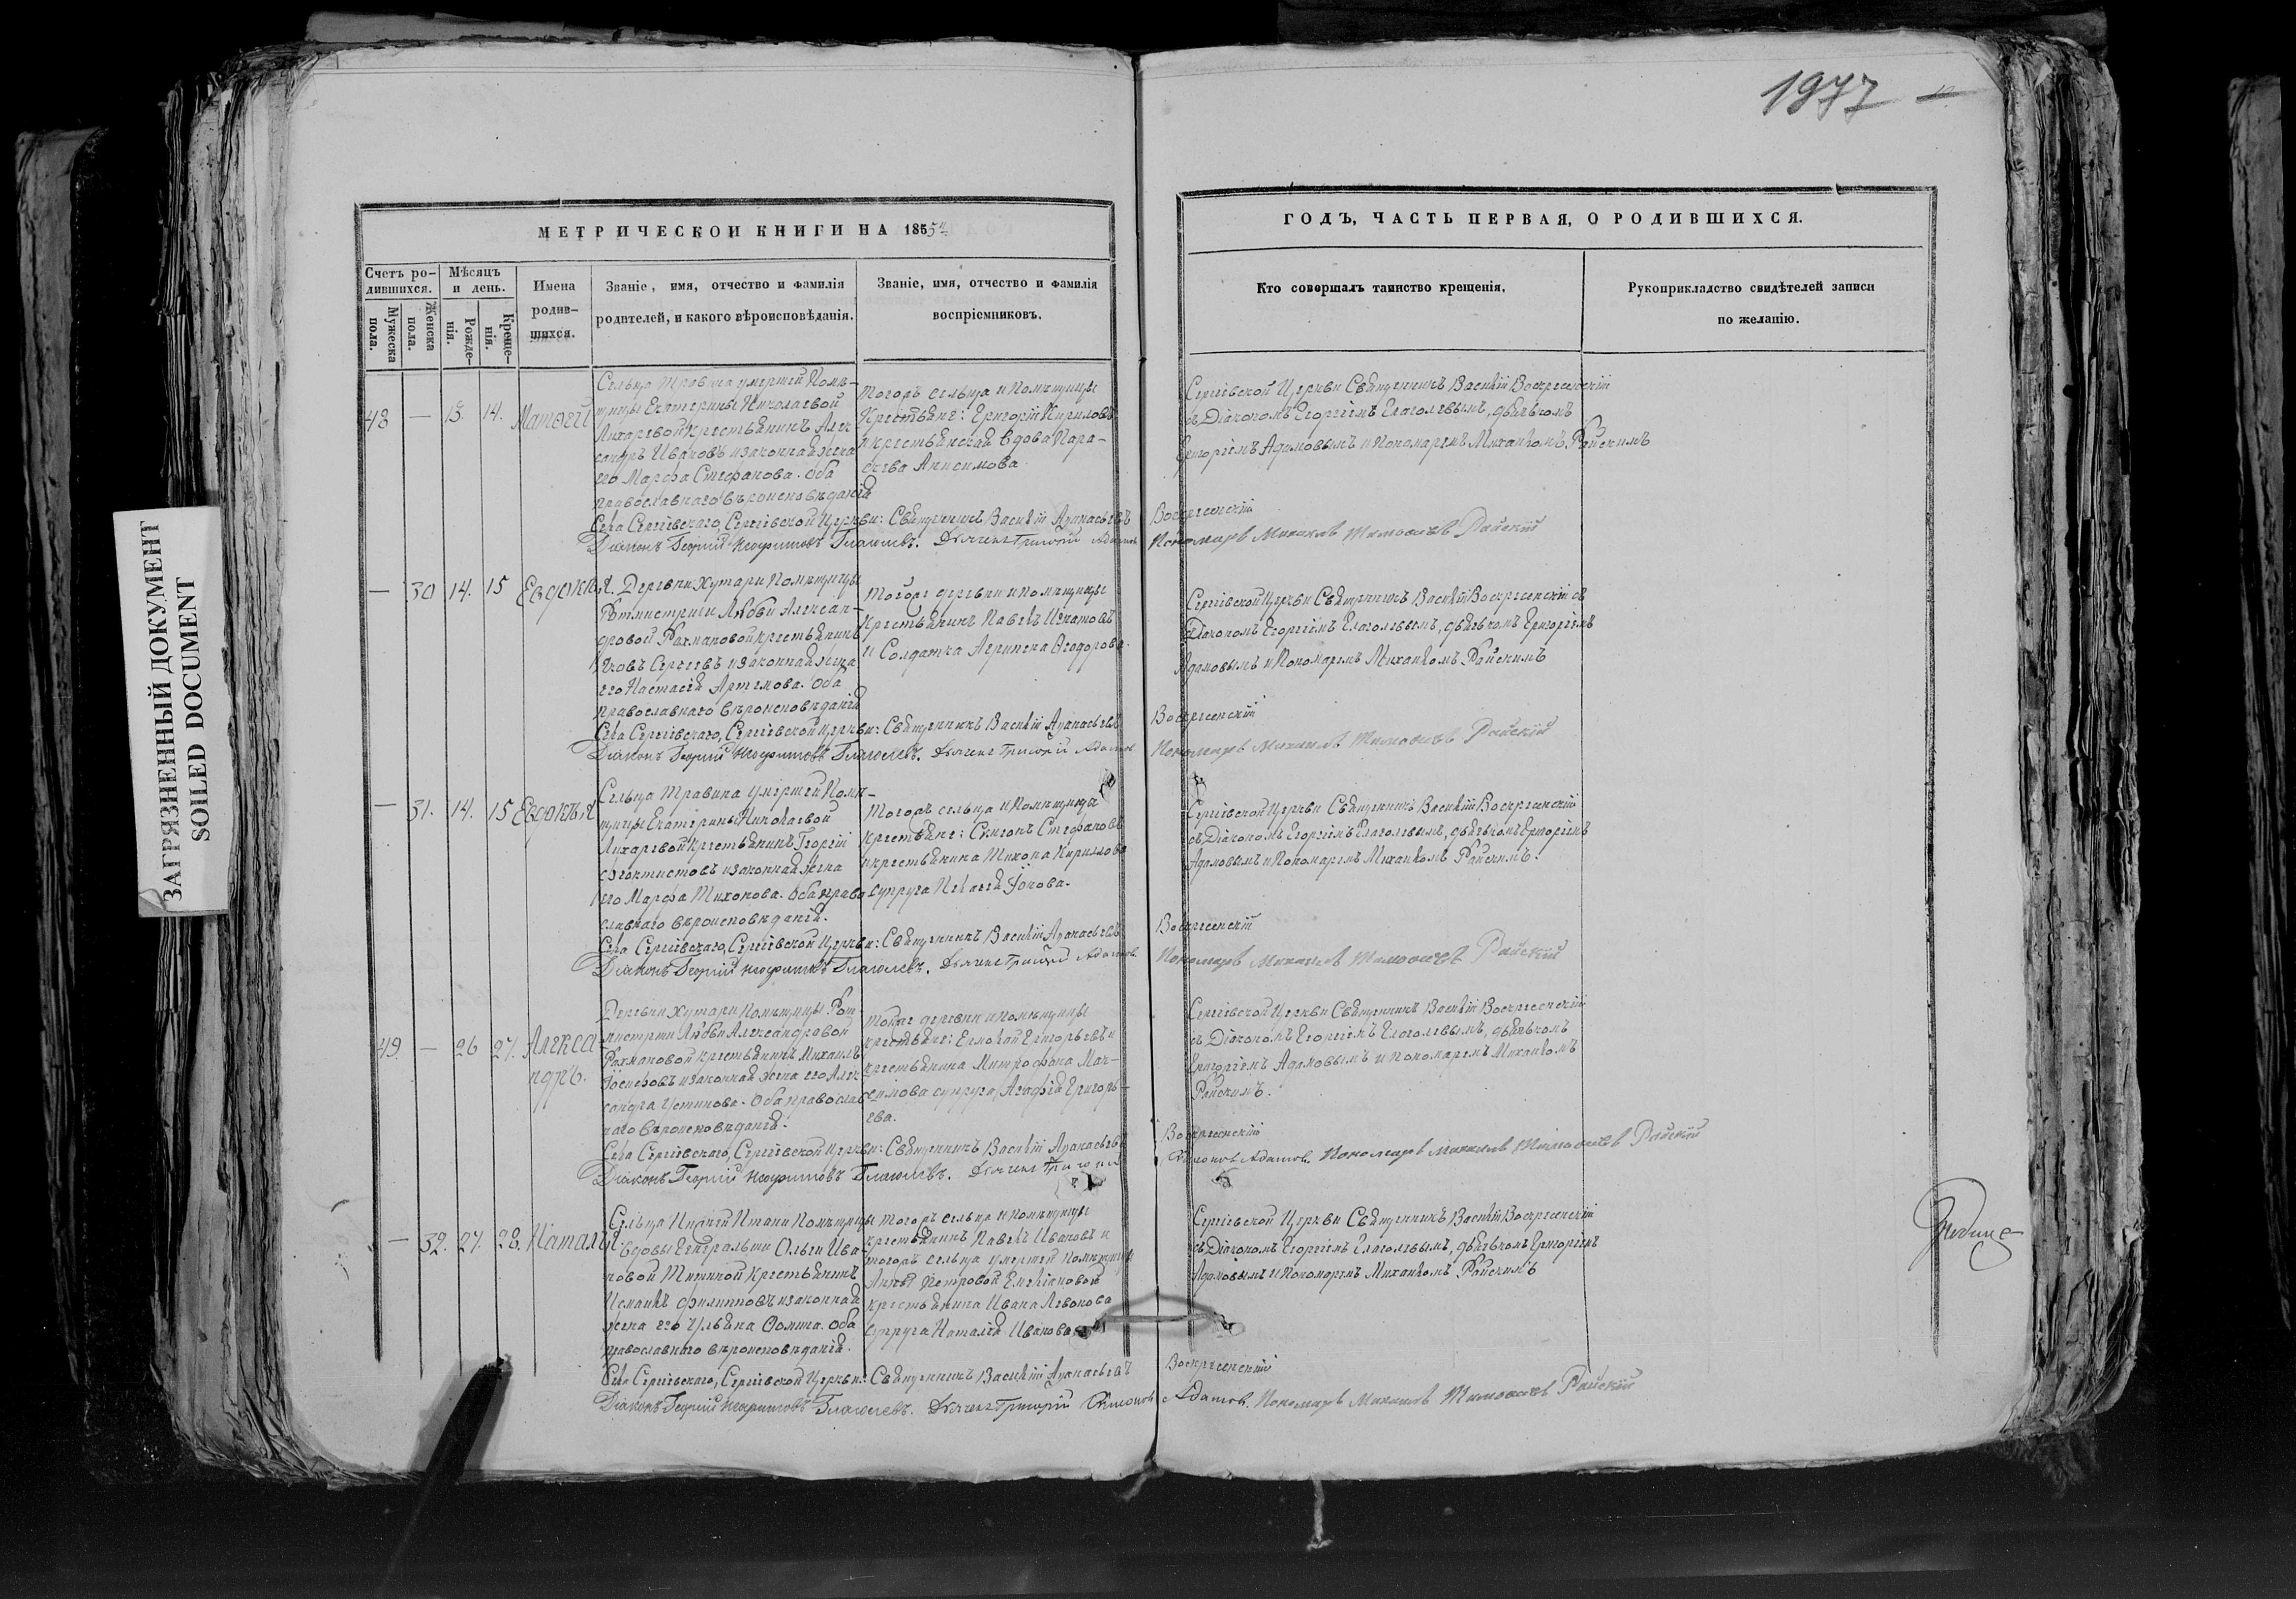 1977
ЗАГРЯЗНЕННЫЙ ДОКУМЕНТ
SOILED DOCUMENT
МЕТРИЧЕСКОЙ КНИГИ НА 1854
Счетъ родившихся.
Мужеска пола.
Женска пола.
Мѣсяцъ и день.
Рожденія.
Крещенія.
Имена родившихся.
Званіе, имя, отчество и фамилія
родителей, и какого вѣроисповѣданія.
Званіе, имя, отчество и фамилія
воспріемниковъ.
ГОДЪ, ЧАСТЬ ПЕРВАЯ, О РОДИВШИХСЯ.
Кто совершалъ таинство крещенія.
Рукоприкладство свидѣтелей записи
по желанію.
48 — 13. 14. Матѳей
Сельца Травина умершей Помѣ-
щицы Екатерины Николаевой
Лихаревой крестьянинъ Алек
сандръ Ивановъ и законная жена
его Марфа Стефанова. Оба
православнаго вѣроисповѣданія
Тогожъ сельца и Помѣщицы
Крестьяне: Григорій Кириловъ
и крестьянская вдова Пара-
скева Анисимова.
Сергіевской Церкви Священникъ Василій Воскресенскій
съ Діакономъ Георгіемъ Глаголевымъ, дьячкомъ
Григоріемъ Адамовымъ и Пономаремъ Михаиломъ Райскимъ
Села Сергіевскаго, Сергіевской Церкви: Священникъ Василій Аѳанасьевъ Воскресенскій
Діаконъ Георгій Неофитовъ Глаголевъ. Дьячекъ Григорій Адамов Пономарь Михаилъ Тимофеевъ Райскій
— 30 14. 15 Евдокія.
Деревни Хутари Помѣщицы
Ротмистрши Любви Алексан-
дровой Рахмановой крестьянинъ
Яковъ Сергеевъ и законная жена
его Настасія Артемова. Оба
православнаго вѣроисповѣданія
Тойже деревни и помѣщицы
Крестьянинъ Павелъ Игнатовъ
и Солдатка Агрипена Ѳеодорова.
Сергіевской Церкви Священникъ Василій Воскресенскій съ
Діакономъ Георгіемъ Глаголевымъ, дьячкомъ Григоріемъ
Адамовымъ и Пономаремъ Михаиломъ Райскимъ
Села Сергіевскаго, Сергіевской Церкви: Священникъ Василій Аѳанасьевъ Воскресенскій
Діаконъ Георгій Неофитовъ Глаголевъ. Дьячекъ Григорій Адамов Пономарь Михаилъ Тимофеевъ Райскій
— 31. 14. 15 Евдокія
Сельца Травина умершей Помѣ-
щицы Екатерины Николаевой
Лихаревой крестьянинъ Георгій
Ѳеоктистовъ и законная жена
его Марфа Тихонова. Оба право
славнаго вѣроисповѣданія.
Тогожъ сельца и Помѣщицы
крестьяне: Симеонъ Стефановъ
и крестьянина Тихона Кириллова
супруга Пелагія Іонова.
Сергіевской Церкви Священникъ Василій Воскресенскій
съ Діакономъ Георгіемъ Глаголевымъ, дьячкомъ Григоріемъ
Адамовымъ и Пономаремъ Михаиломъ Райскимъ.
Села Сергіевскаго, Сергіевской Церкви: Священникъ Василій Аѳанасьевъ Воскресенскій
Діаконъ Георгій Неофитовъ Глаголевъ. Дьячекъ Григорій Адамов. Пономарь Михаилъ Тимофеевъ Райскій
49. — 26 27. Алекса
ндръ.
Деревни Хутари Помѣщицы Рот
мистрши Любви Александровой
Рахмановой крестьянинъ Михаилъ
Іосифовъ и законная жена его Алек
сандра Устинова. Оба православ
наго вѣроисповѣданія.
Тойже деревни и помѣщицы
крестьяне: Ермолай Григорьевъ и
крестьянина Митрофана Мак-
симова супруга Агафія Григорь-
ева.
Сергіевской Церкви Священникъ Василій Воскресенскій
съ Діакономъ Георгіемъ Глаголевымъ, дьячкомъ
Григоріемъ Адамовымъ и Пономаремъ Михаиломъ
Райскимъ.
Села Сергіевскаго, Сергіевской Церкви: Священникъ Василій Аѳанасьевъ Воскресенскій
Діаконъ Георгій Неофитовъ Глаголевъ. Дьячекъ Григорій Симонов Адамов. Пономарь Михаилъ Тимофеевъ Райскій
— 32. 27. 28. Наталія
Сельца Помѣщицы
вдовы Генеральши Ольги Ива-
новой крестьянинъ
Филипповъ и законная
жена его Ульяна Ѳомина. Оба
православнаго вѣроисповѣданія.
Тогожъ сельца и помѣщицы
крестьянинъ Павелъ Ивановъ и
тогожъ сельца умершей помѣщицы
Петровой Емельяновой
крестьянина Ивана Леонова
супруга Наталія Иванова
Сергіевской Церкви Священникъ Василій Воскресенскій
съ Діакономъ Георгіемъ Глаголевымъ, дьячкомъ Григоріемъ
Адамовымъ и Пономаремъ Михаиломъ Райскимъ
Села Сергіевскаго, Сергіевской Церкви: Священникъ Василій Аѳанасьевъ Воскресенскій
Діаконъ Георгій Неофитовъ Глаголевъ. Дьячекъ Григорій Симонов Адамов. Пономарь Михаилъ Тимофеевъ Райскій